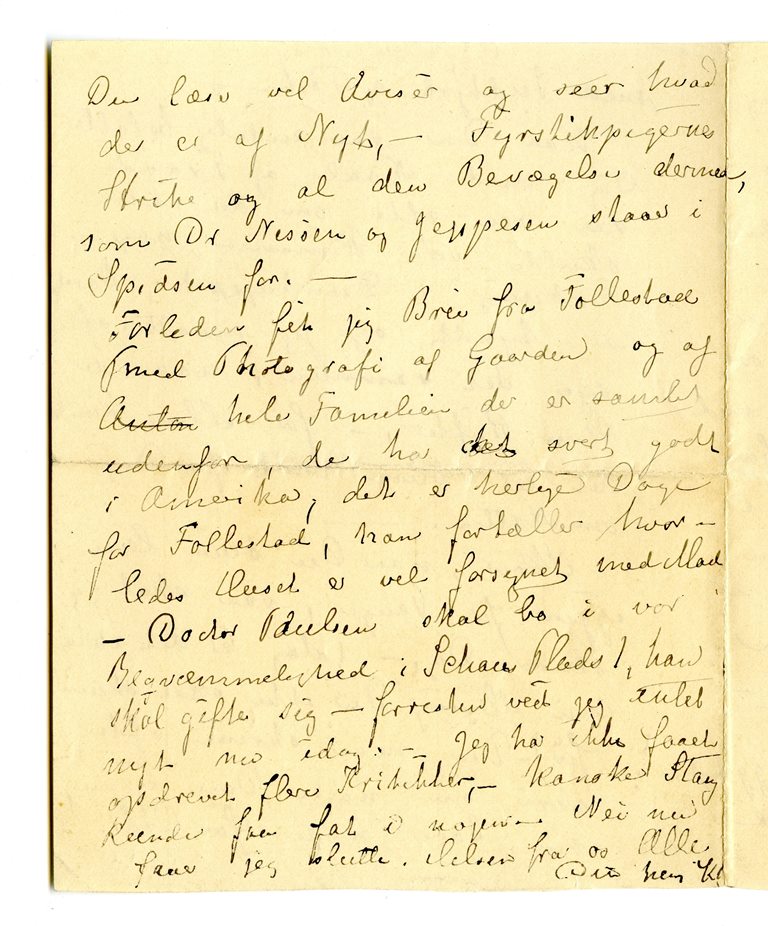 Du læser vel Aviser og seer hvad
der er af Nyt, — Fyrstikpigernes
Strike og al den Bevægelse dermed,
som Dr Nissen og Jeppesen staar i
Spidsen for. —
Forleden fik jeg Brev fra Follestad
med Photografi af Gaarden og af
Anton hele Familien der er samlet
udenfor, de ha det svert godt
i Amerika, det er herlige Dage
for Follestad, han fortæller hvor-
ledes Huset er vel forsynet med Mad
— Doctor Paulsen skal bo i vor
Beqvæmmelighed i Schaus Plads 1, han
skal gifte sig — forresten ved jeg intet
nyt nu idag. — Jeg ha ikke faaet
opdrevet flere Kritikker, — kanske Stang
kunde faa fat i nogen — Nei nu
faar jeg slutte. Hilsen fra os Alle
Din hen K